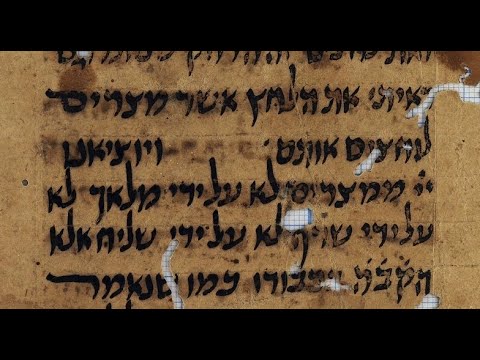 ראיתי את הלחץ אשר מצרים
לוחצים אותם ויוציאנו
ייי ממצרים לא על ידי מלאך לא
על ידי שרף לא על ידי שליח אלא
הקבה בכבודו כמו שנאמר